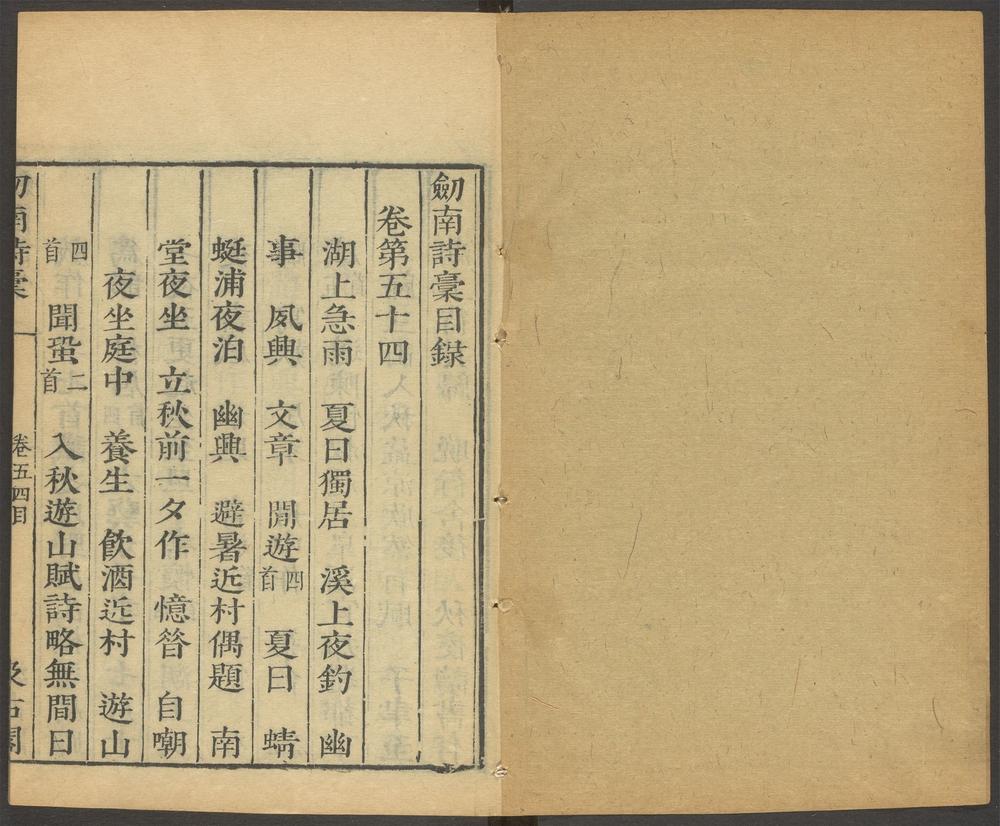 劎南詩稾目錄
卷第五十四
湖上急雨 夏日獨居 溪上夜釣 幽
事 夙興 文章 閒遊四首 夏日 蜻
蜓浦夜泊 幽興 避暑近村偶題 南
堂夜坐 立秋前一夕作 憶昝 自嘲
夜坐庭中 養生 飲酒近村 遊山
四首 聞蛩二首 入秋遊山賦詩略無閒日
卷五四目